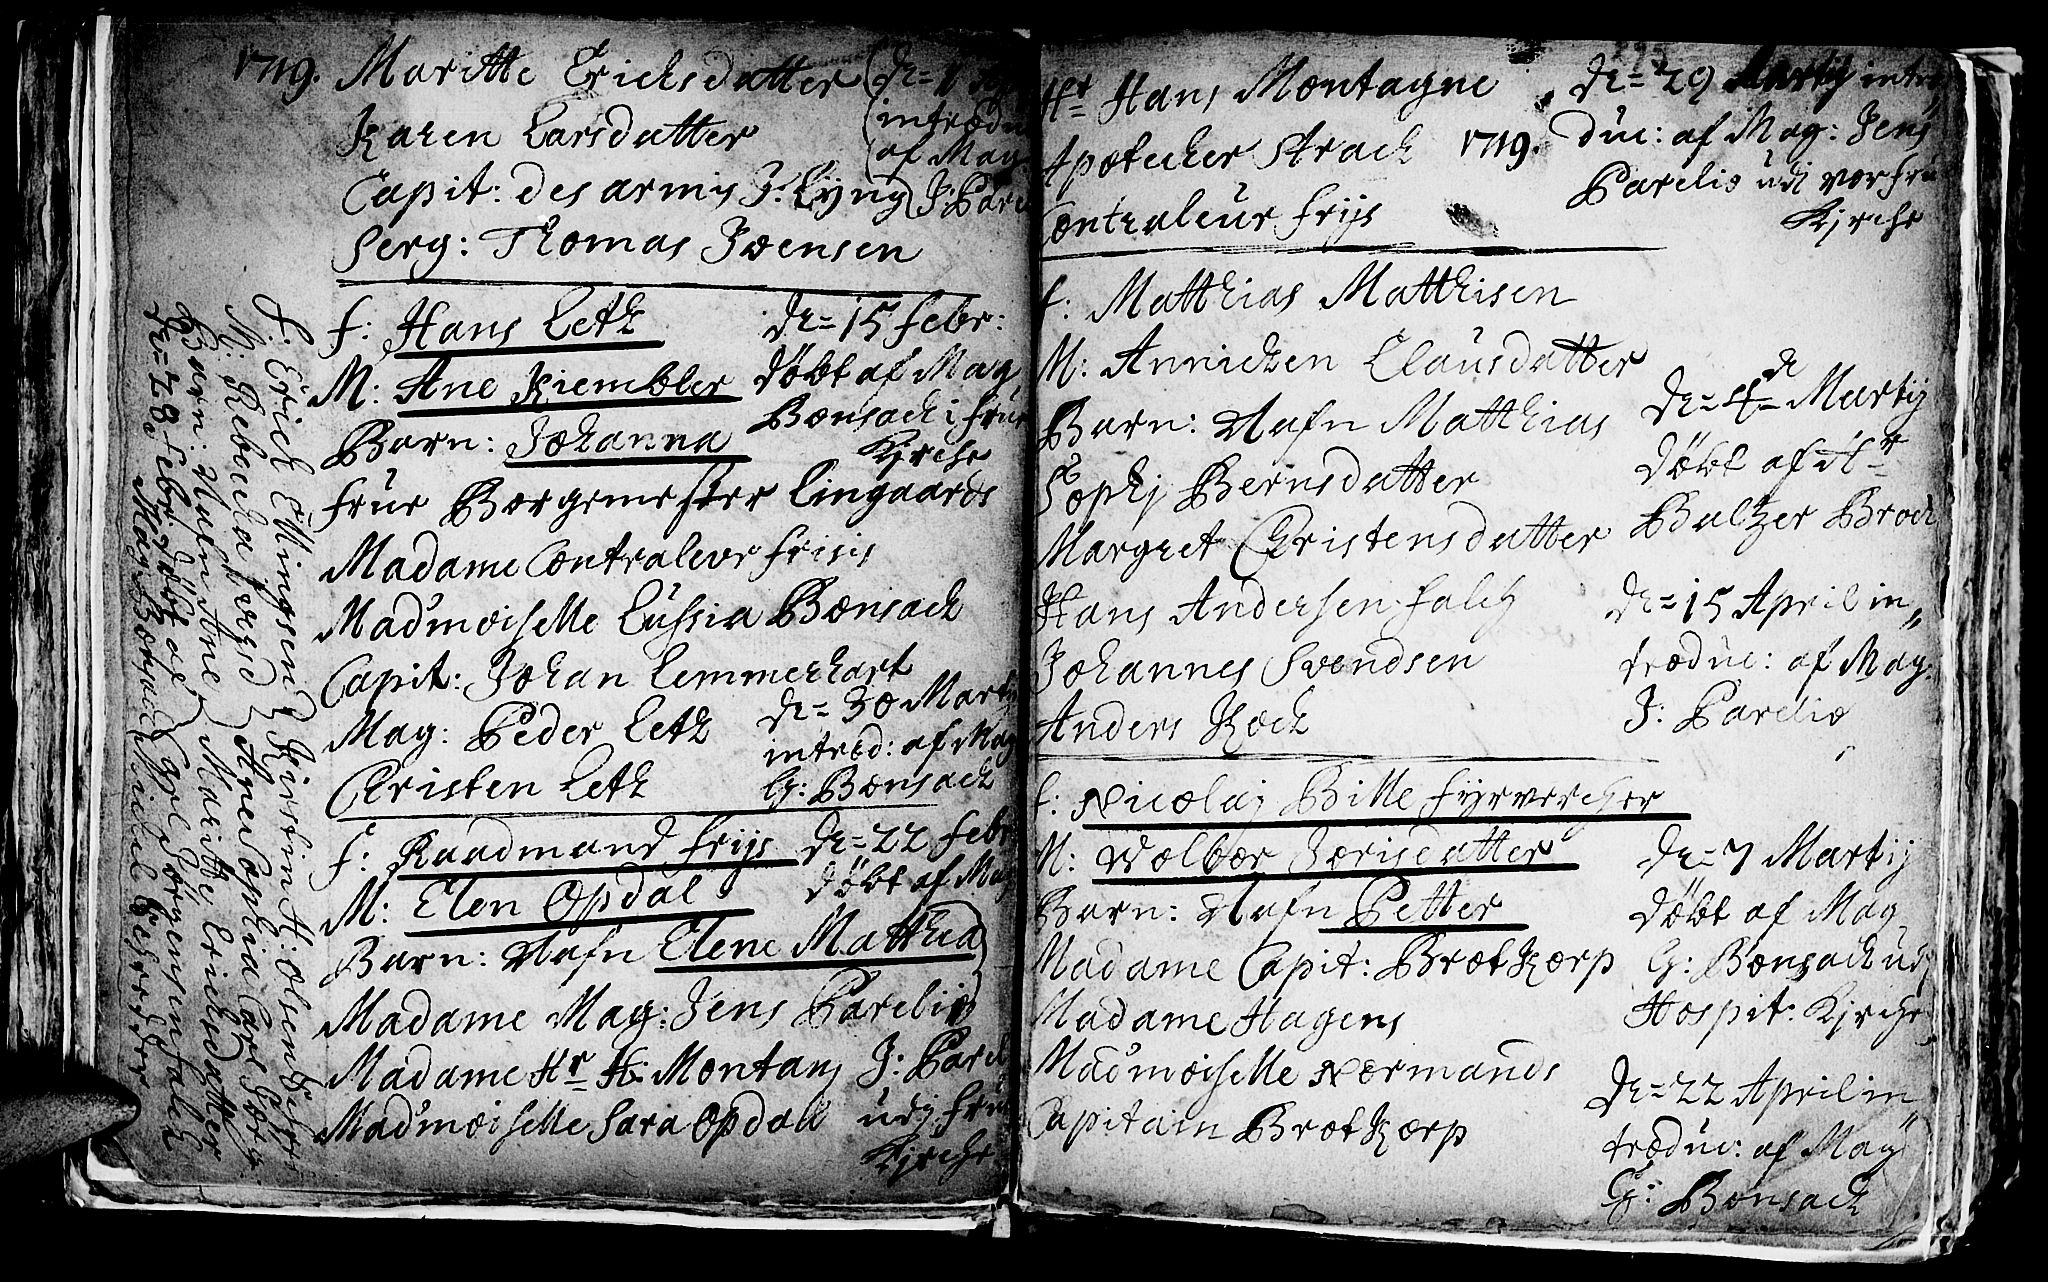 1719. Maritte Erichsdatter
Karen Larsdatter
Capit: des armis J: Lyng
Serg: Thomas Joensen
introdu
af Mag
J: Pareli
F: Hans Letk
M: Ane Kiembler
Barn: Johanna
Frue Borgemester Lingaards
Madame Contraleur Frisis
Madmoiselle Lussia Bonsach
Capit: Johan Lemmerhart
Mag: Peder Letk
Christen Letk
Dn= 15 Febr:
döbt af Mag
Bonsach i Frue
Kjrche
Dn= 30 Marty
introd: af Mag
G: Bonsach
F: Raadmand Frijs
M: Elen Opdal
Barn: Nafn Elene Matthia
Madame Mag: Jens Parelio
Madame Hr H: Montagn
Madmoiselle Sara Opdall
Dn= 22 Febr
döbt af Mag
J: Pareli
udj Frue
Kjrche
F: Erich Ellingsen
M: Rebecka Iversd
Barn: Nafn Ane
Dn= 28 Febr: döbt af
Mag Bonsach
Kirstin H: Olsen
Ane Sophia Carl
Maritte Erichsdatter
Jörgensen Falch
Hr Hans Montagne
Apotecher Strach
Contraleur Frijs
1719.
Dn= 29 Martij intro
duc: af Mag: Jens
Parelio udj vor Frue
Kjrche
F: Matthias Matthisen
M: Annichen Clausdatter
Barn: Nafn Matthias
Sophj Bernsdatter
Margret Christensdatter
Hans Andersen Falch
Johannes Svendsen
Anders Koch
Dn= 4de Martij
döbt af Hr
Baltzer Broch
Dn= 15 April in,,
troduc: af Mag.
J: Parelio
F: Nicolaj Bille Fyrvercher
M: Volbor Jorisdatter
Barn: Nafn Petter
Madame Capit: Brotkorp
Madame Hagens
Madmoiselle Normands
Capitain Brotkorp
Dn= 7 Martij
döbt af Mag
G: Bonsach udj
Hospit: Kjrche
Dn= 22 April in
troduc: af Mag
G: Bonsach